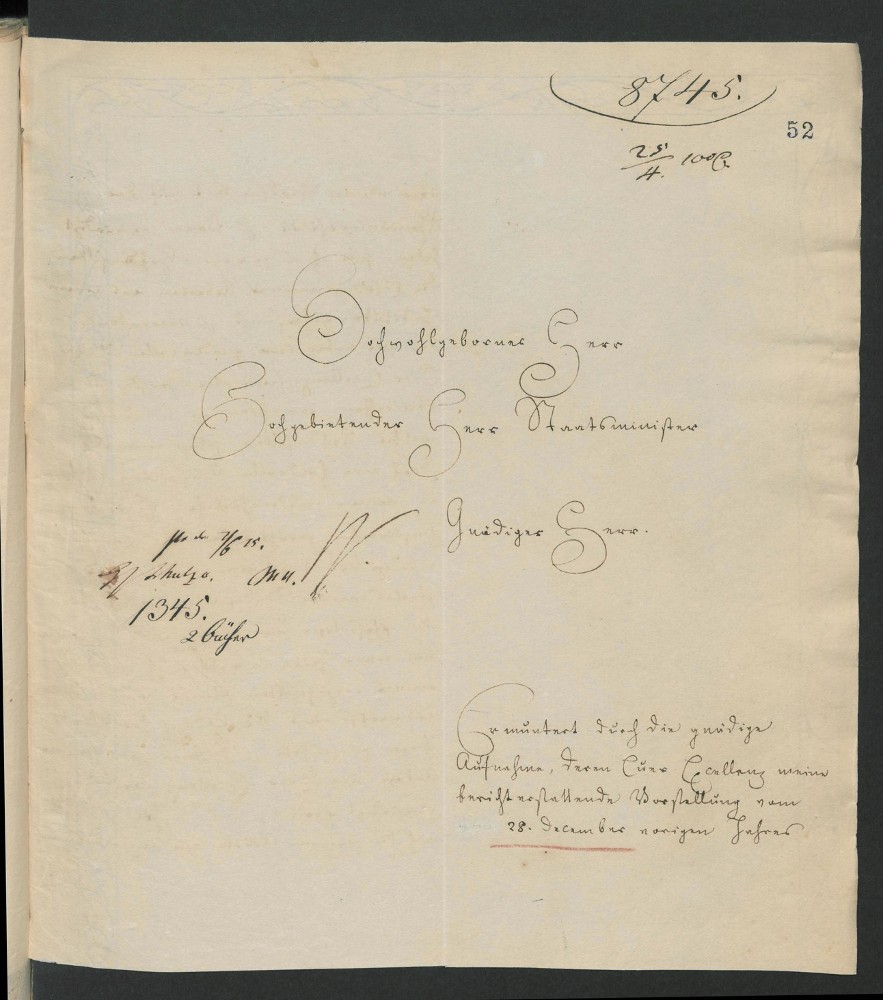 8745.
52
25/4.
Hochwohlgeborner Herr
Hochgebietender Herr Staatsminister
Gnädiger Herr.
1345.
2 Bücher
Ermuntert durch die gnädige
Aufnahme, deren Euer Excellenz meine
berichterstattende Vorstellung vom
28. December vorigen Jahres